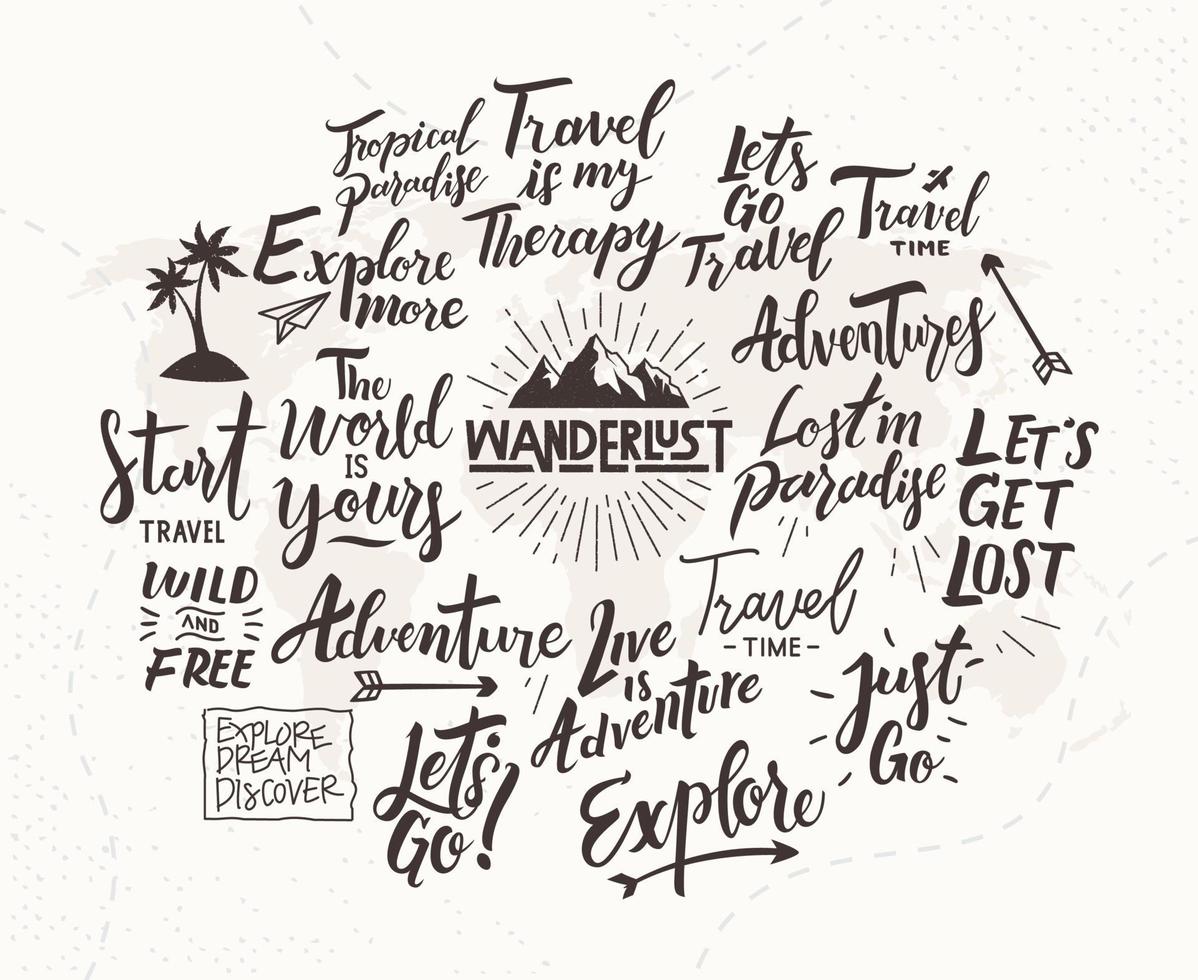 Tropical
Paradise
Travel
is my
Therapy
Lets
Go
Travel
Travel
TIME
Explore
more
Adventures
The
World
is
yours
WANDERLUST
Lost in
paradise
LET'S
GET
LOST
Start
TRAVEL
WILD
AND
FREE
Adventure
Live
is
Adventure
Travel
- TIME -
Just
Go
EXPLORE
DREAM
DISCOVER
Let's
Go!
Explore